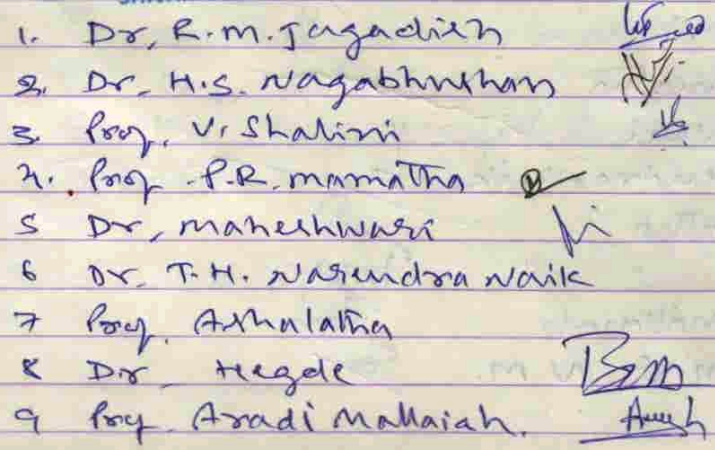 1. Dr. R.M. Jagadish
2. Dr. H.S. Nagabhushan
3. Prof. V. Shalini
4. Prof. P.R. mamatha
5 Dr. Maheshwari
6 Dr. T.H. Narendra Naik
7 Prof. Ashalatha
8 Dr Hegde
9 Prof. Aradi Mallaiah.